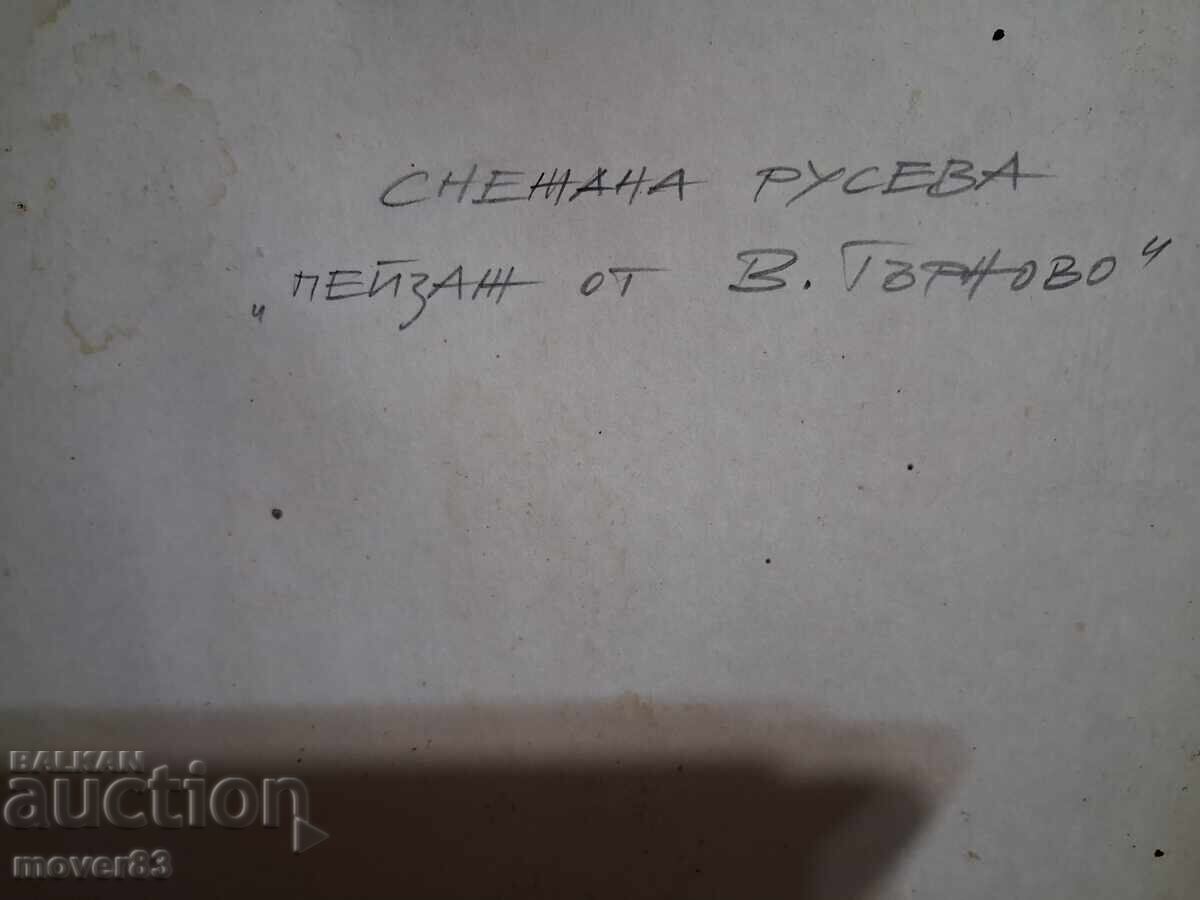 СНЕЖАНА РУСЕВА
„ПЕЙЗАЖ ОТ В. ТЪРНОВО“
BALKAN
auction
mover83